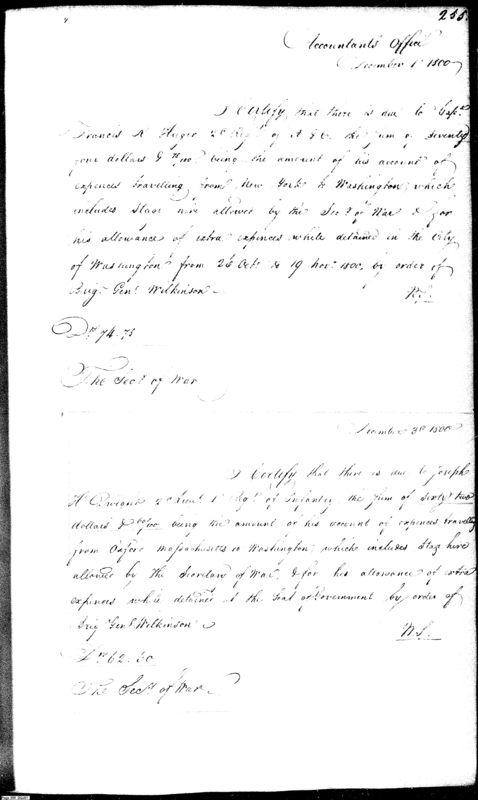 255.
Accountants Office
December 1st 1800
I Certify that there is due to Capt.
Francis K Huger 2d Regt of A & E the sum of seventy
four dollars & 75/100 being the amount of his account of
expences travelling from New York to Washington, which
includes Stage hire allowed by the Secy of War & for
his allowance of extra expences while detained in the City
of Washington from 26 Octr to 19 Novr 1800, by order of
Brigr Genl Wilkinson
Drs 74.75
The Secy of War
December 3d 1800
I Certify that there is due to Joseph
H Dwight 2d Lieut 1st Regt of Infantry the sum of sixty two
dollars & 60/100 being the amount of his account of expences travelling
from Oxford Massachusetts to Washington, which includes Stage hire
allowed by the Secretary of War, & for his allowance of extra
expences while detained at the Seat of Government by order of
Brig Genl Wilkinson
W.S.
Drs 62.60
The Secy of War